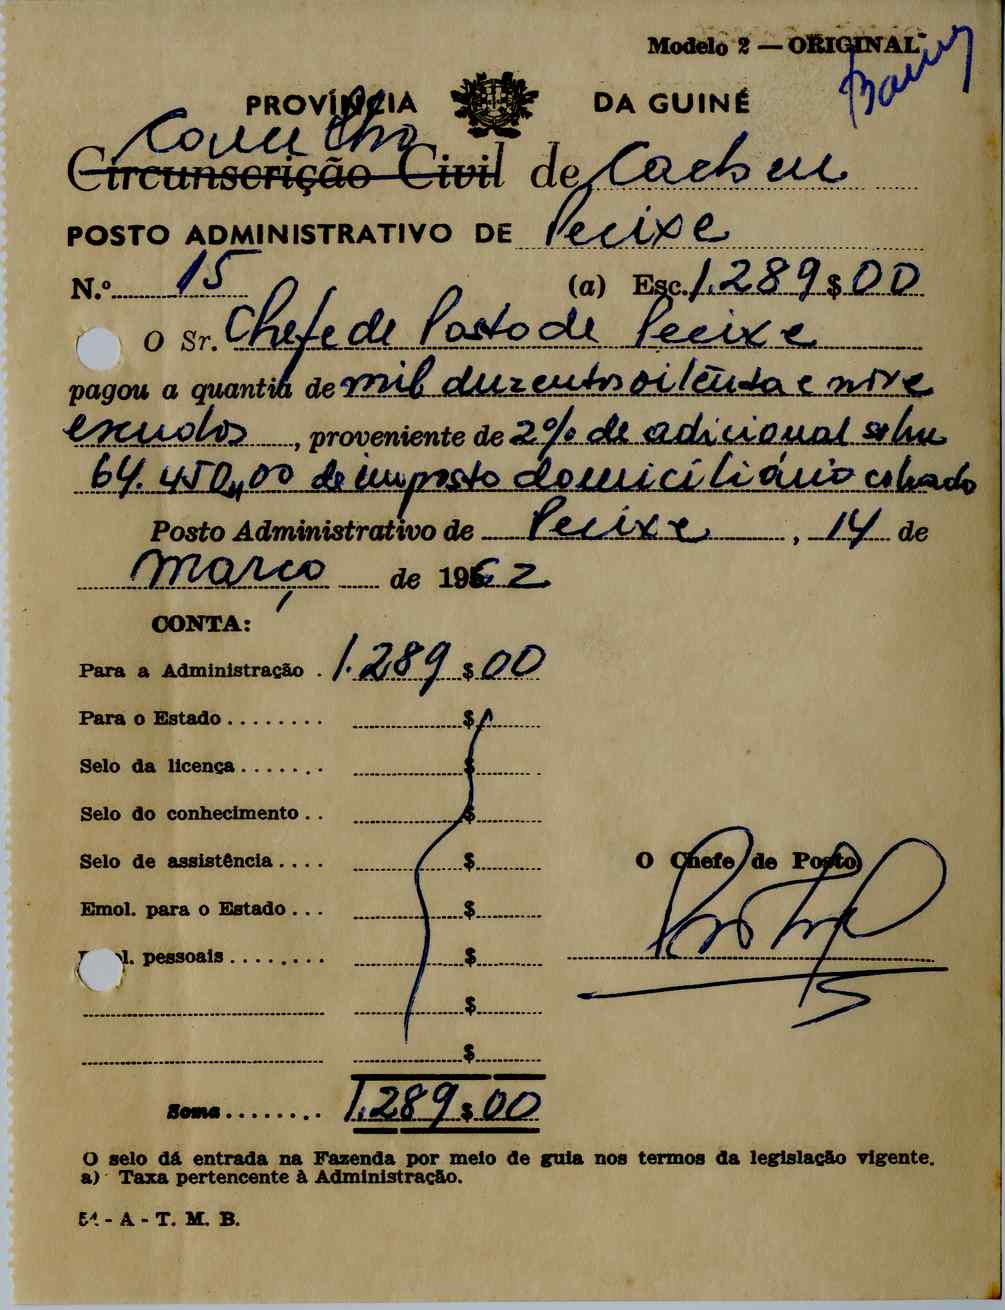 Modelo 2 — ORIGINAL
PROVÍNCIA DA GUINÉ
Concelho
Circunscrição Civil de Cacheu
POSTO ADMINISTRATIVO DE Pecixe
N.º 15 (a) Esc. 1.289$00
O Sr. Chefe de Posto de Pecixe
pagou a quantia de mil duzentos oitenta e nove
escudos, proveniente de 2% de adicional sobre
64.450,00 de imposto domiciliário cobrado
Posto Administrativo de Pecixe, 14 de
Março de 1962
CONTA:
Para a Administração . 1.289$00
Para o Estado ........ $
Selo da licença ....... $
Selo do conhecimento .. $
Selo de assistência .... $
O Chefe de Posto
Emol. para o Estado ... $
l. pessoais ........ $
$
$
Soma ........ 1.289$00
O selo dá entrada na Fazenda por meio de guia nos termos da legislação vigente.
a) Taxa pertencente à Administração.
- A - T. M. B.